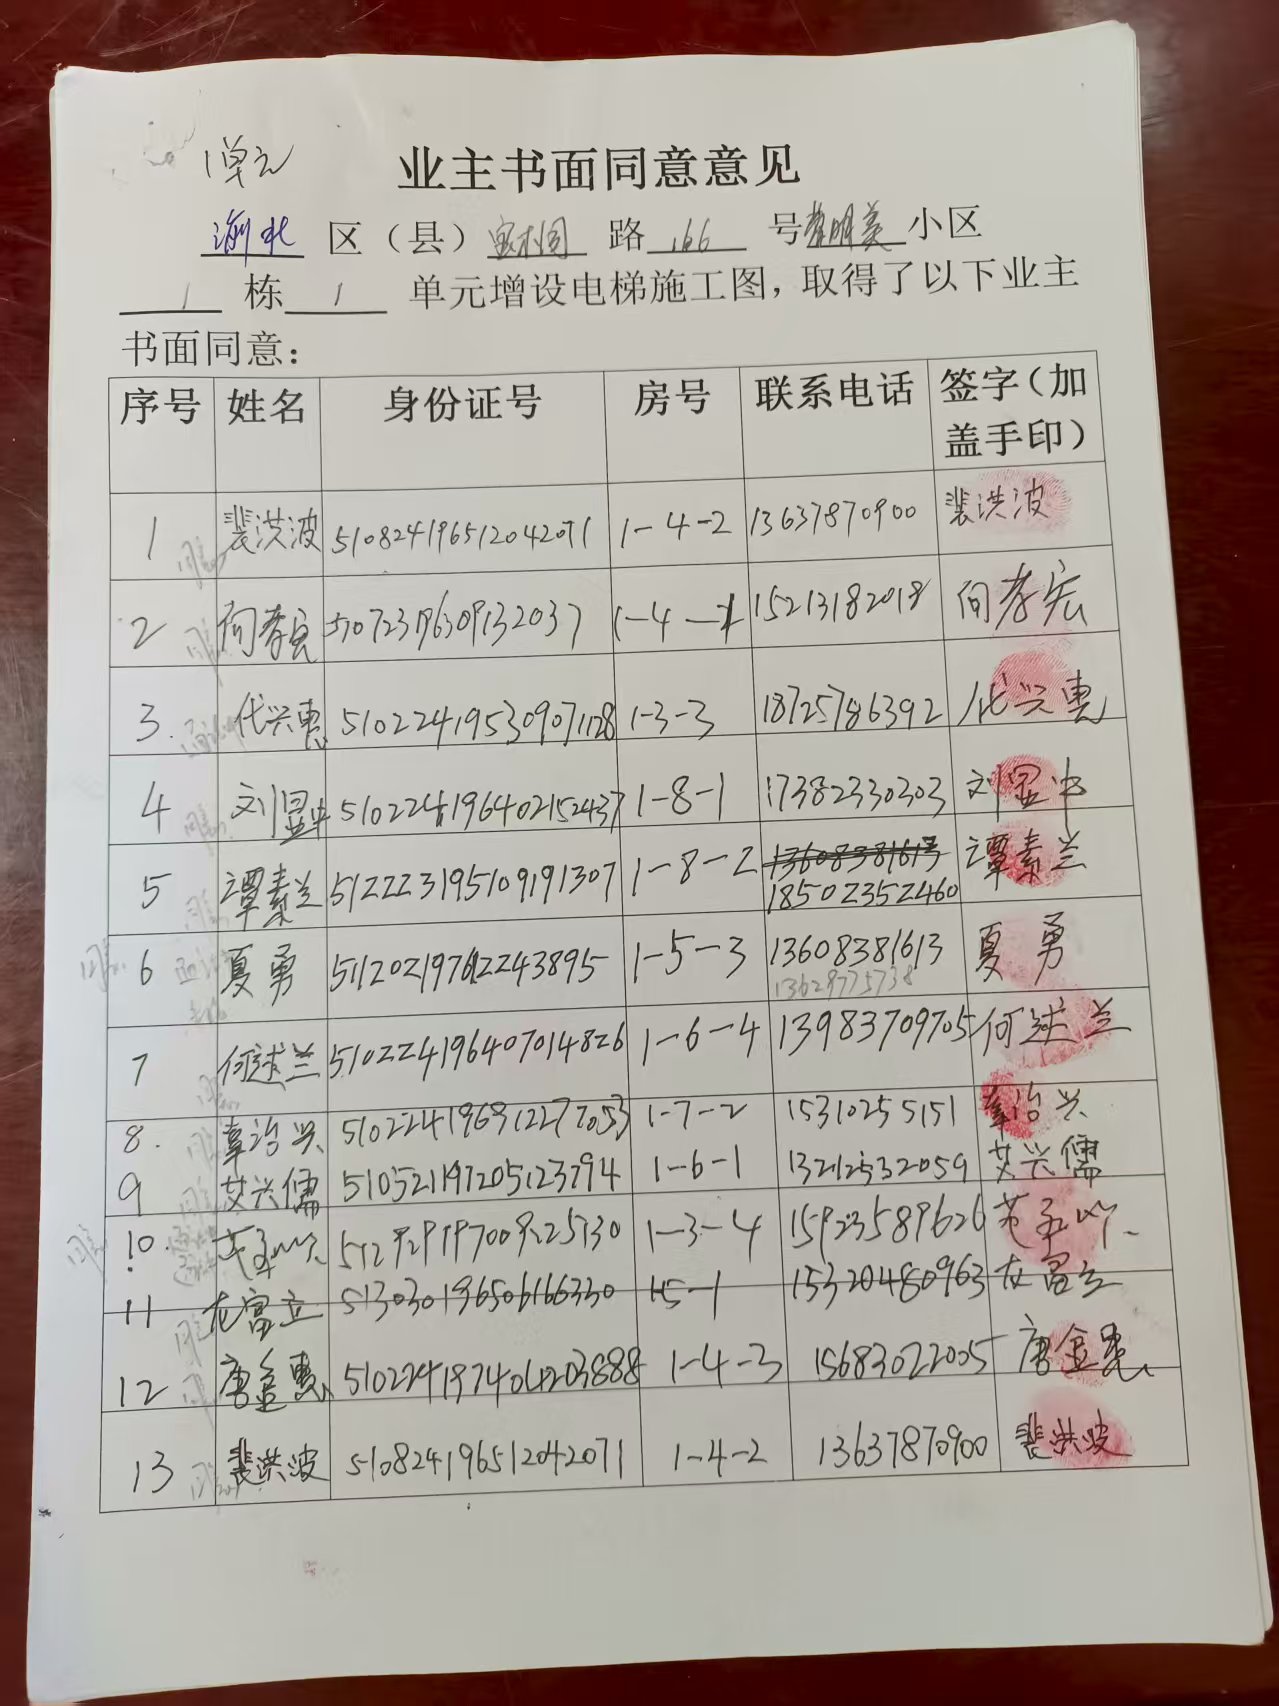 1单元
业主书面同意意见
渝北 区（县） 路 166 号 小区
1 栋 1 单元增设电梯施工图，取得了以下业主
书面同意：
序号 姓名 身份证号 房号 联系电话 签字（加盖手印）
1 裴洪波 510824196512042071 1-4-2 13637870900 裴洪波
2 向孝宏 1-4- 15213182018 向孝宏
3. 代兴惠 510224195309071128 1-3-3 18725786392 代兴惠
4 刘显中 1-8-1 17382330303 刘显中
5 谭素兰 512223195109191307 1-8-2 13608381613
18502352460 谭素兰
6 夏勇 511202197612243895 1-5-3 13608381613 夏勇
13629775738
7 何述兰 510224196407014826 1-6-4 13983709705 何述兰
8. 辜治兴 1-7-2 15310255151 辜治兴
9 艾兴儒 510521197205123794 1-6-1 13212532059 艾兴儒
10. 1-3-4 15923589626
11 龙富立 513030196506166330 1-5-1 15320480963 龙富立
12 唐金惠 1-4-3 15683022005 唐金惠
13 裴洪波 510824196512042071 1-4-2 13637870900 裴洪波